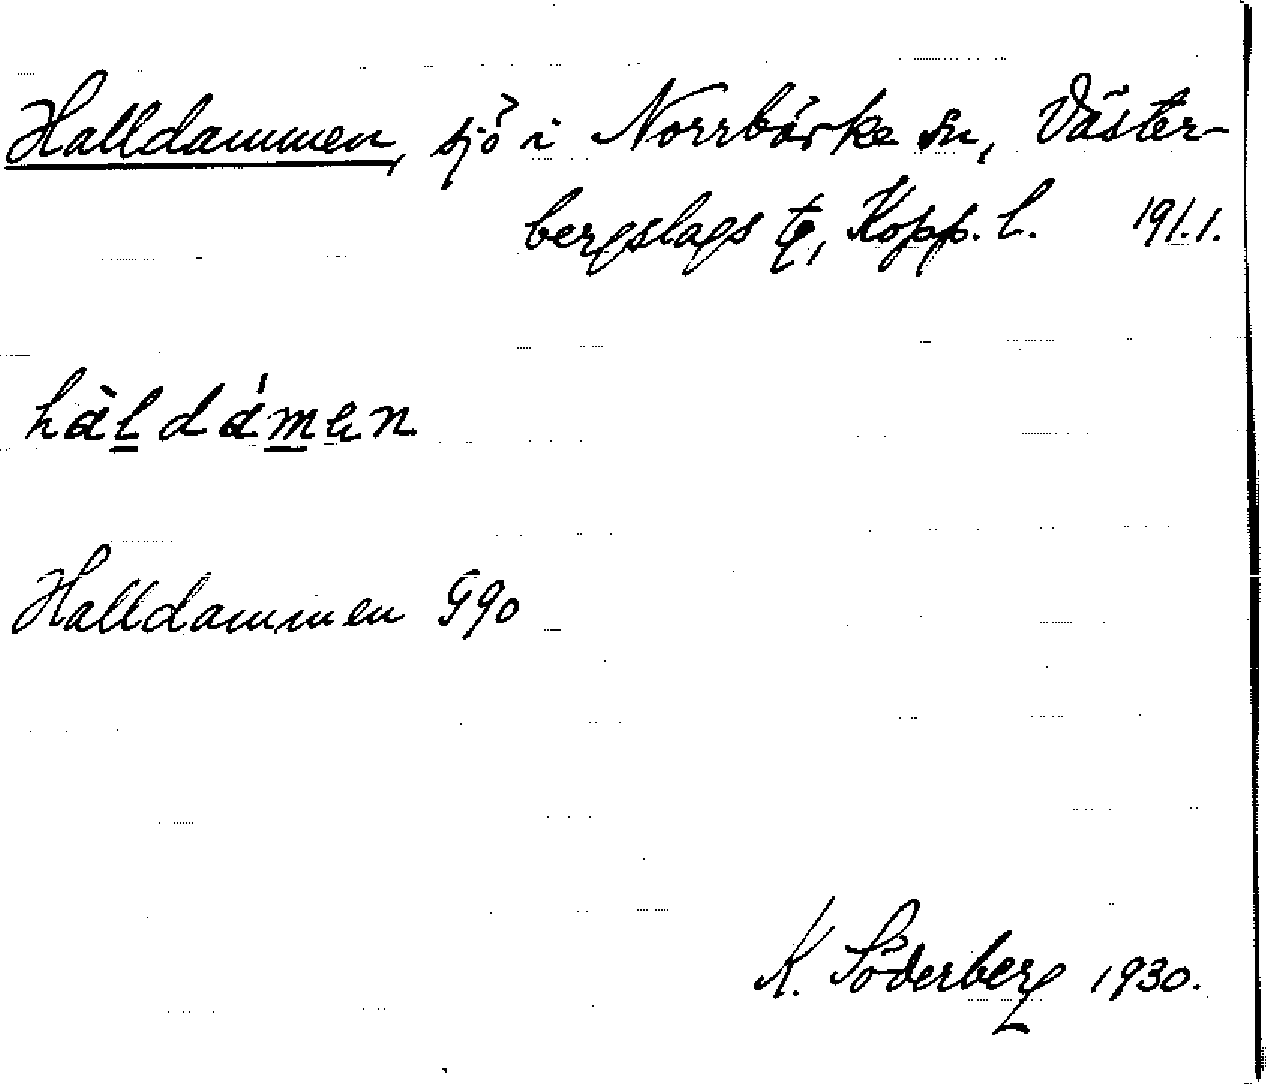 Halldammen, sjö i Norrbärke sn, Väster-
bergslags tg, Kopp. l. 191.1.
hàldámen
Halldammen G90
K. Söderberg 1930.